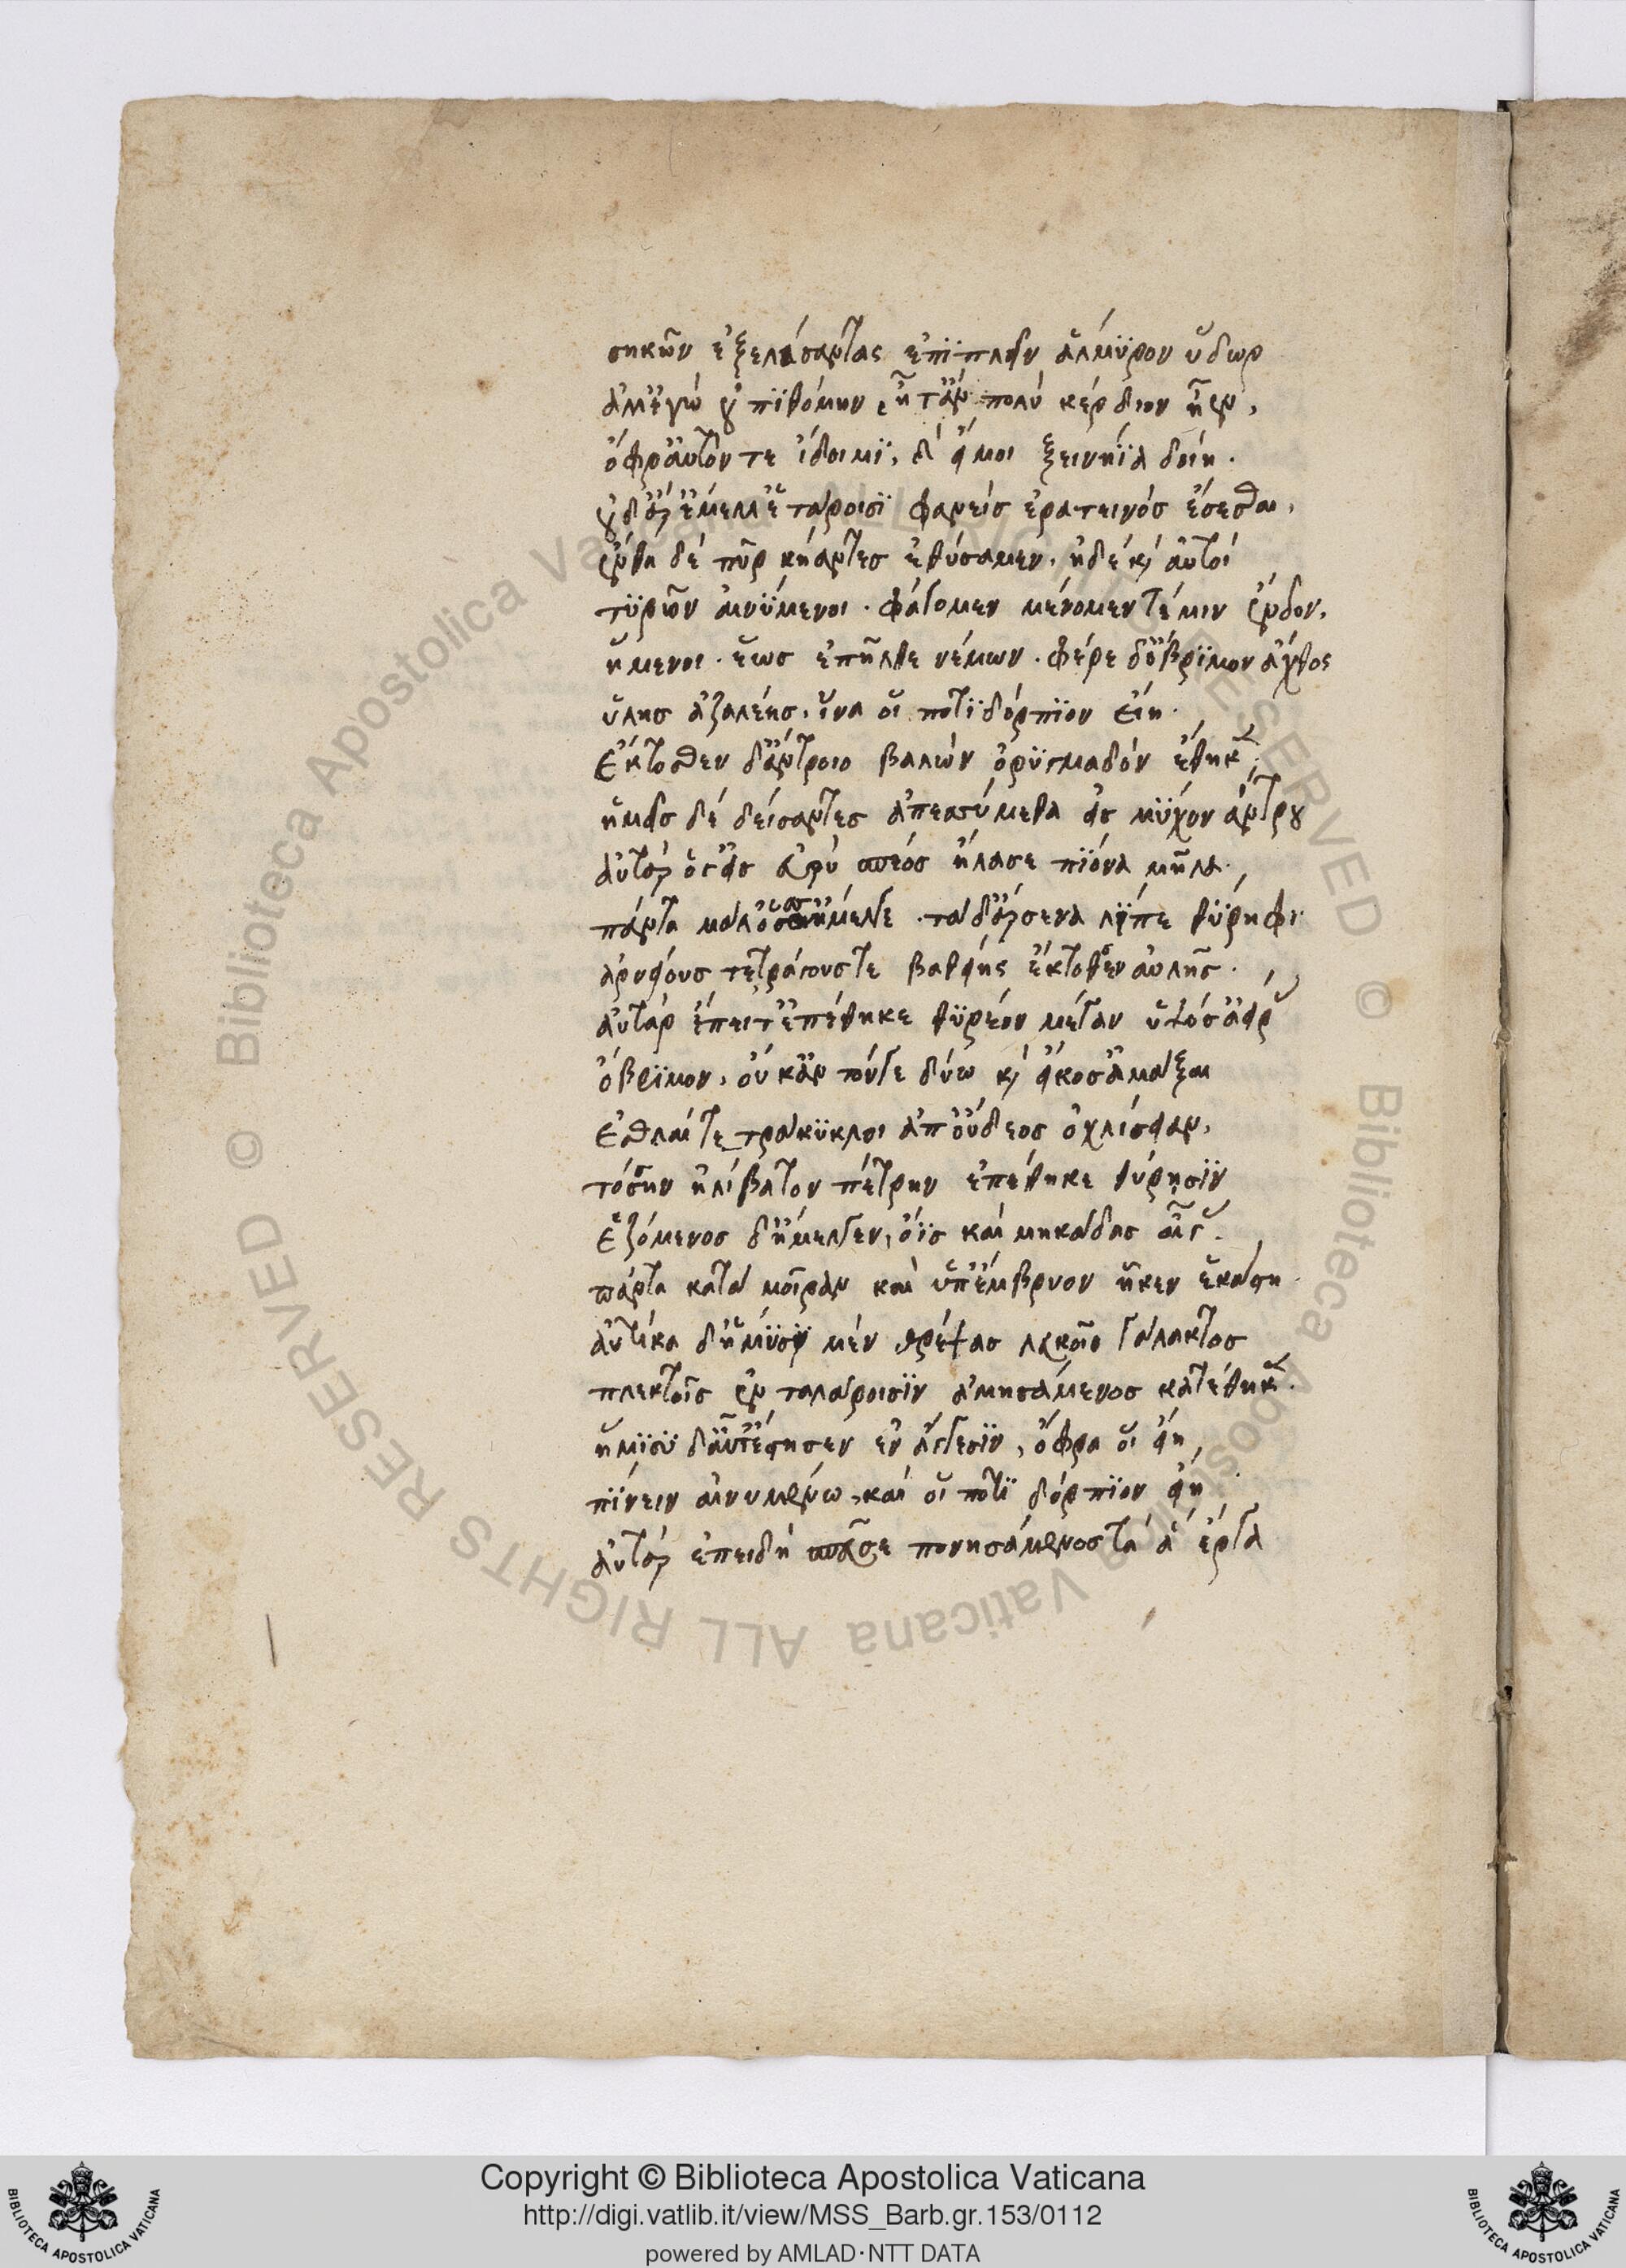 σηκῶν ἐξελάσαντας ἐπιπλεῖν ἁλμυρὸν ὕδωρ
ἀλλ' ἐγὼ οὐ πιθόμην, ἦ τ' ἂν πολὺ κέρδιον ἦεν,
ὄφρ' αὐτόν τε ἴδοιμι, εἴ μοι ξεινήϊα δοίη.
οὐδ' ἄρ' ἔμελλ' ἑτάροισι φανεὶς ἐρατεινὸς ἔσεσθαι.
ἔνθα δὲ πῦρ κήαντες ἐθύσαμεν, ἠδὲ καὶ αὐτοὶ
τυρῶν αἰνύμενοι. φάγομεν μένομέν τέ μιν ἔνδον,
ἥμενοι. ἕως ἐπῆλθε νέμων. φέρε δ' ὄβριμον ἄχθος
ὕλης ἀζαλέης, ἵνα οἱ ποτιδόρπιον εἴη.
ἔκτοσθεν δ' ἄντροιο βαλὼν ὀρυγμαδὸν ἔθηκε.
ἡμεῖς δὲ δείσαντες ἀπεσσύμεθα εἰς μυχὸν ἄντρου
αὐτὰρ ὅγ' εἰς εὐρὺ σπέος ἤλασε πίονα μῆλα.
πάντα μάλ' ὅσσ' ἤμελγε. τὰ δ' ἄρσενα λεῖπε θύρηφι
ἀρνειούς τε τράγους τε βαθείης ἔκτοθεν αὐλῆς.
αὐτὰρ ἔπειτ' ἐπέθηκε θυρεὸν μέγαν ὑψόσ' ἀείρας
ὄβριμον, οὐκ ἂν τόνγε δύω καὶ εἴκοσ' ἄμαξαι
ἐσθλαί τετράκυκλοι ἀπ' οὔδεος ὀχλίσειαν,
τόσσην ἠλίβατον πέτρην ἐπέθηκε θύρησιν
ἑζόμενος δ' ἤμελγεν, ὄϊς καὶ μηκάδας αἶγας.
πάντα κατὰ μοῖραν καὶ ὑπ' ἔμβρυον ἧκεν ἑκάστη.
αὐτίκα δ' ἥμισυ μὲν θρέψας λευκοῖο γάλακτος
πλεκτοῖς ἐν ταλάροισιν ἀμησάμενος κατέθηκε.
ἥμισυ δ' αὖτ' ἔστησεν ἐν ἄγγεσιν, ὄφρα οἱ εἴη,
πίνειν αἰνυμένω, καί οἱ ποτὶ δόρπιον εἴη.
αὐτὰρ ἐπειδὴ σπεῦσε πονησάμενος τὰ ἃ ἔργα
Copyright © Biblioteca Apostolica Vaticana
http://digi.vatlib.it/view/MSS_Barb.gr.153/0112
powered by AMLAD·NTT DATA